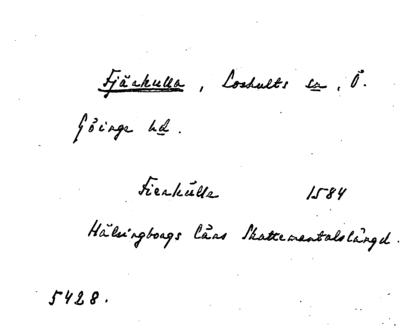 Fjärkulla, Loshults sn, Ö.
Göinge hd.
Fierkulle 1584
Hälsingborgs läns Skattemantalslängd.
5428.